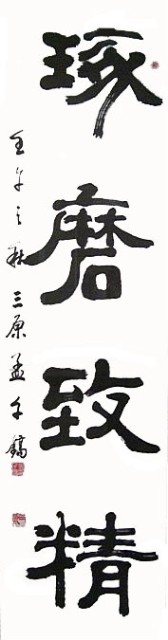 琢磨致精
壬午之秋三原孟千鎬